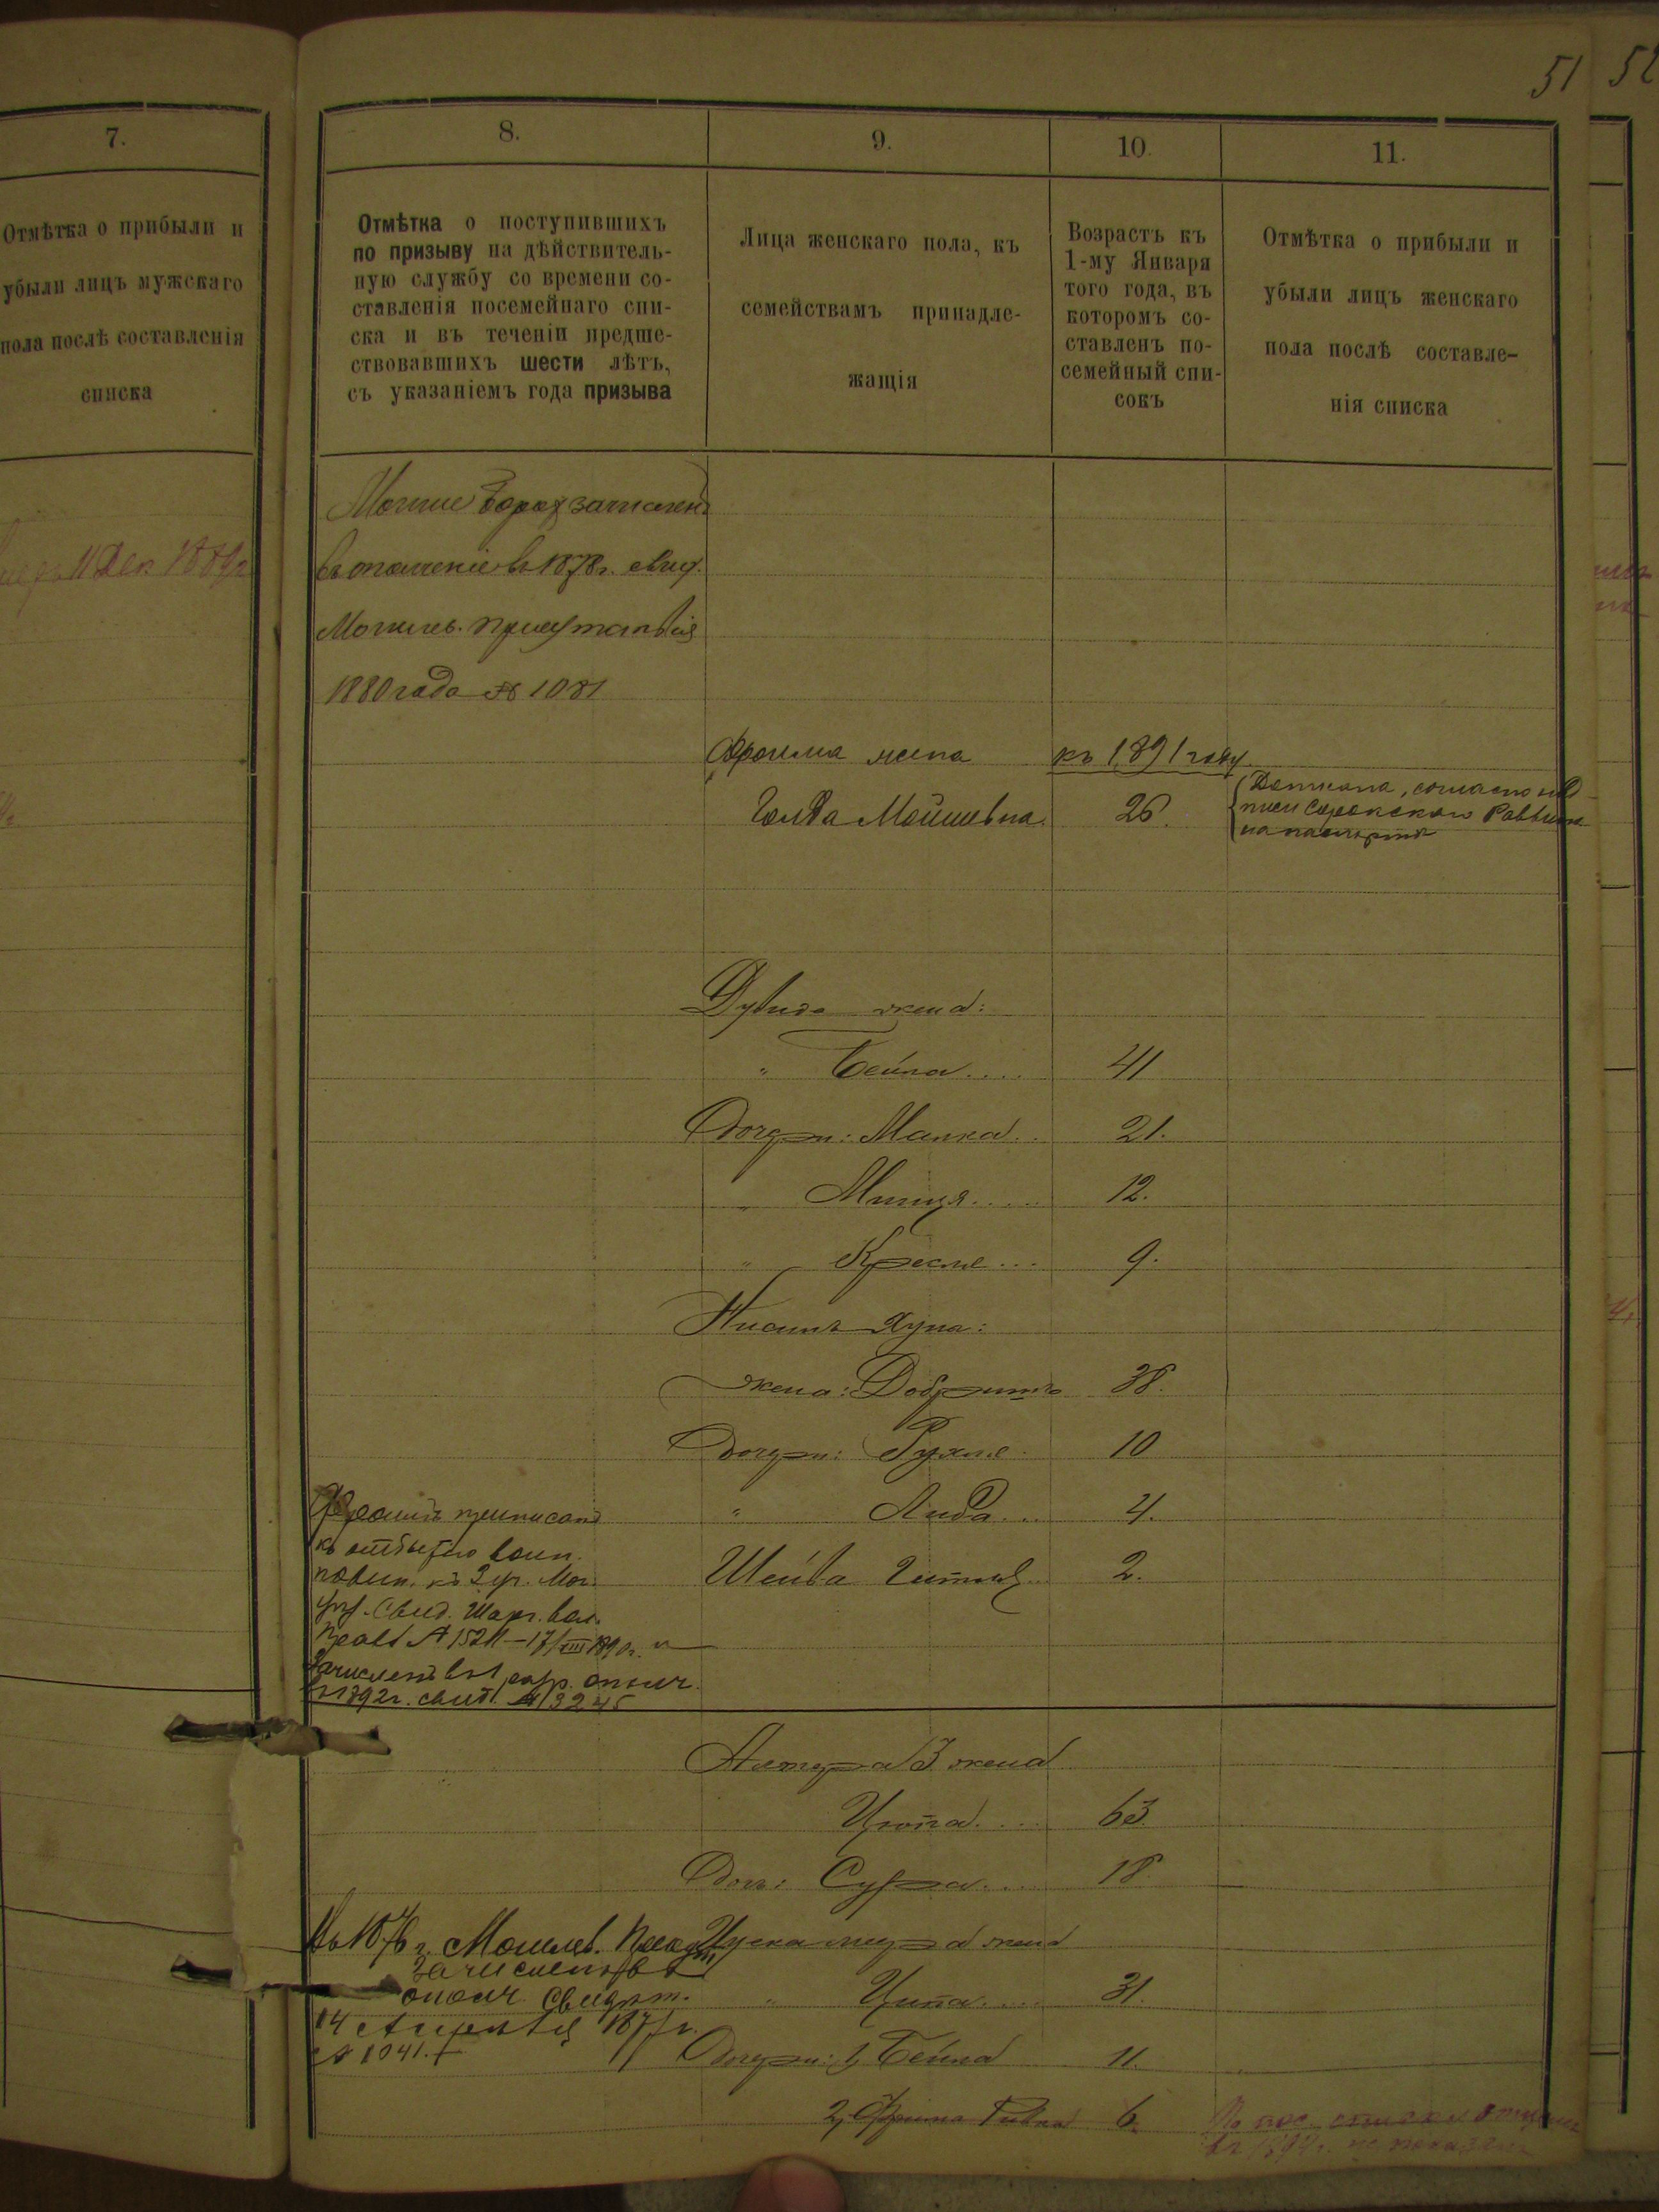 51
52
7.
Отмѣтка о прибыли и
убыли лицъ мужскаго
пола послѣ составленія
списка
11 Дек 1889г
8.
Отмѣтка о поступившихъ
по призыву на дѣйствитель-
ную службу со времени со-
ставленія посемейнаго спи-
ска и въ теченіи предше-
ствовавшихъ шести лѣтъ,
съ указаніемъ года призыва
9.
Лица женскаго пола, къ
семействамъ принадле-
жащія
10.
Возрастъ къ
1-му Января
того года, въ
которомъ со-
ставленъ по-
семейный спи-
сокъ
11.
Отмѣтка о прибыли и
убыли лицъ женскаго
пола послѣ составле-
нія списка
зачисленъ
въ ополченіе въ 1878г. свид.
Могилев. присутствія
1880 года № 1081
Фроима жена къ 1891 году
Голда Мойшевна. 26.
Дописана, согласно над
писи Сорокскаго Раввина
на паспортѣ
Дувида жена:
" Бейла.... 41
Дочери: Малка.. 21.
" 12.
" Кресле... 9.
жена: Добришъ 38.
Дочери: Рухле. 10
" Либа... 4.
Шейва 2.
Фроимъ приписанъ
къ отбытію воин.
повин. къ 2 уч. Мог.
Свид. Шарг. вол.
№ 1521 — 17/VIII 1890г. и
Зачисленъ въ 1 разр. ополч.
въ 1892г. свид. № 3245
Алтера 3 жена
Ципа.... 63.
Дочь: Сура.... 18.
Въ 1876 г. Могилев.
зачисленъ въ
ополч. свидѣт.
14 Апрѣля 1877г.
№ 1041.
жена
" Ципа.... 31.
Дочери: 1, Бейла 11.
2, Фрима Ривка 6.
По пос. списка
въ 1894г. не показана